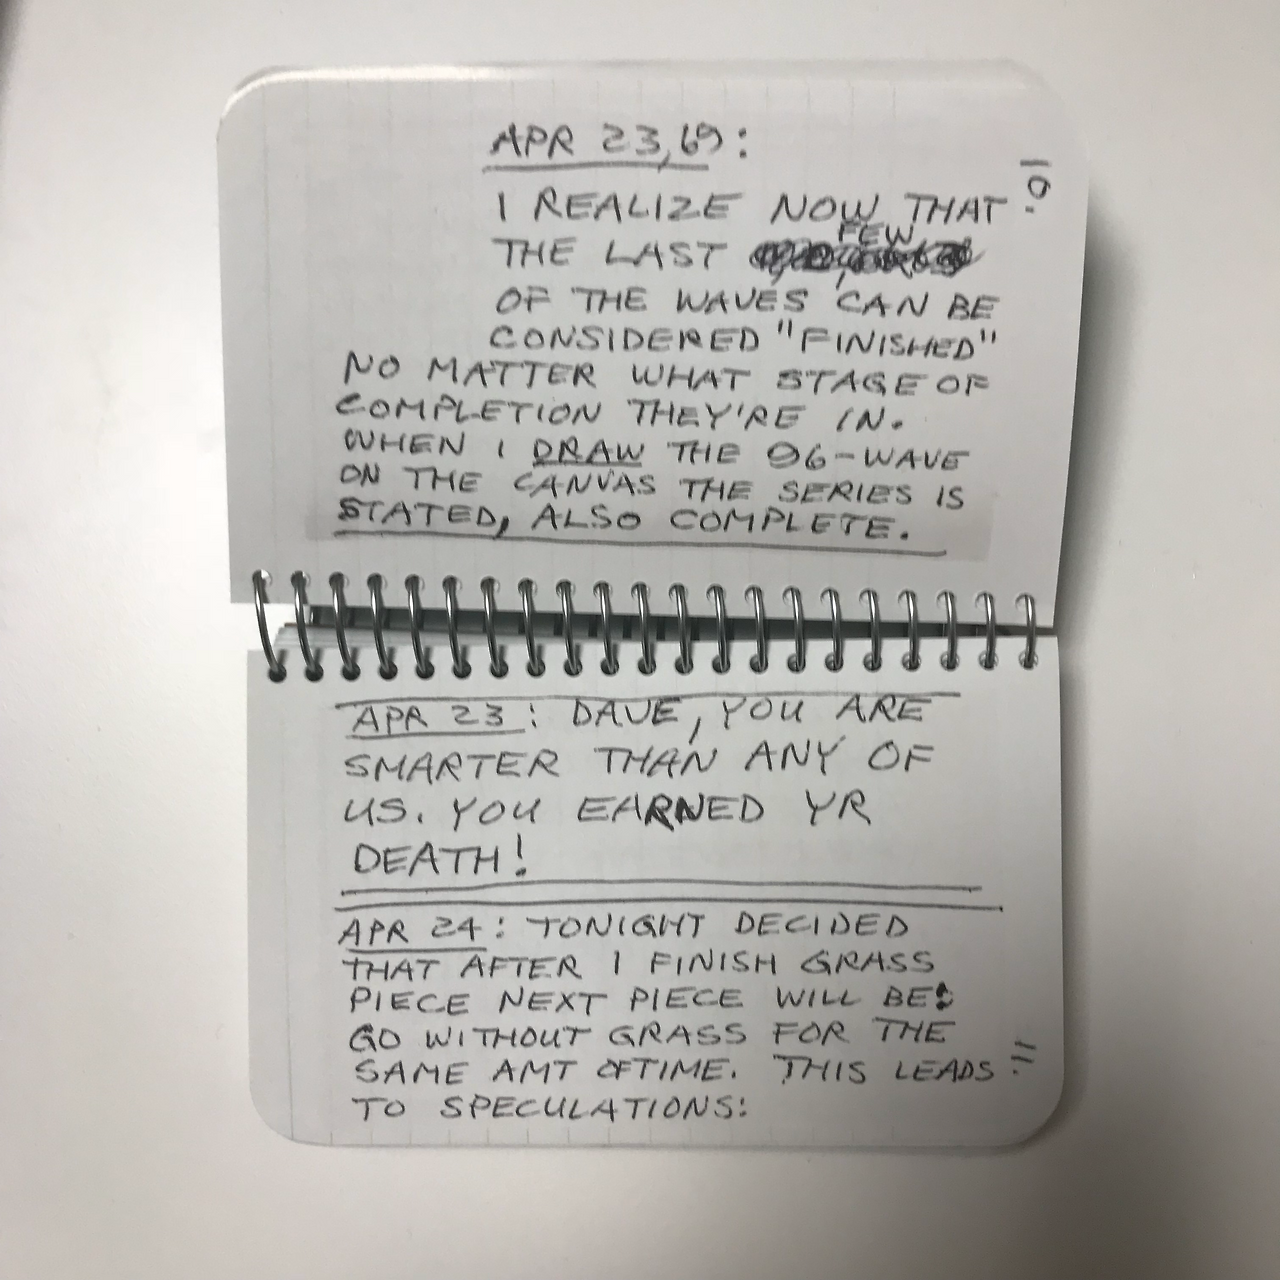 APR 23,69:
10.
I REALIZE NOW THAT
THE LAST FEW
OF THE WAVES CAN BE
CONSIDERED "FINISHED"
NO MATTER WHAT STAGE OF
COMPLETION THEY'RE IN.
WHEN I DRAW THE 96-WAVE
ON THE CANVAS THE SERIES IS
STATED, ALSO COMPLETE.
APR 23: DAVE, YOU ARE
SMARTER THAN ANY OF
US. YOU EARNED YR
DEATH!
APR 24: TONIGHT DECIDED
THAT AFTER I FINISH GRASS
PIECE NEXT PIECE WILL BE:
GO WITHOUT GRASS FOR THE
SAME AMT OF TIME. THIS LEADS
TO SPECULATIONS:
11.